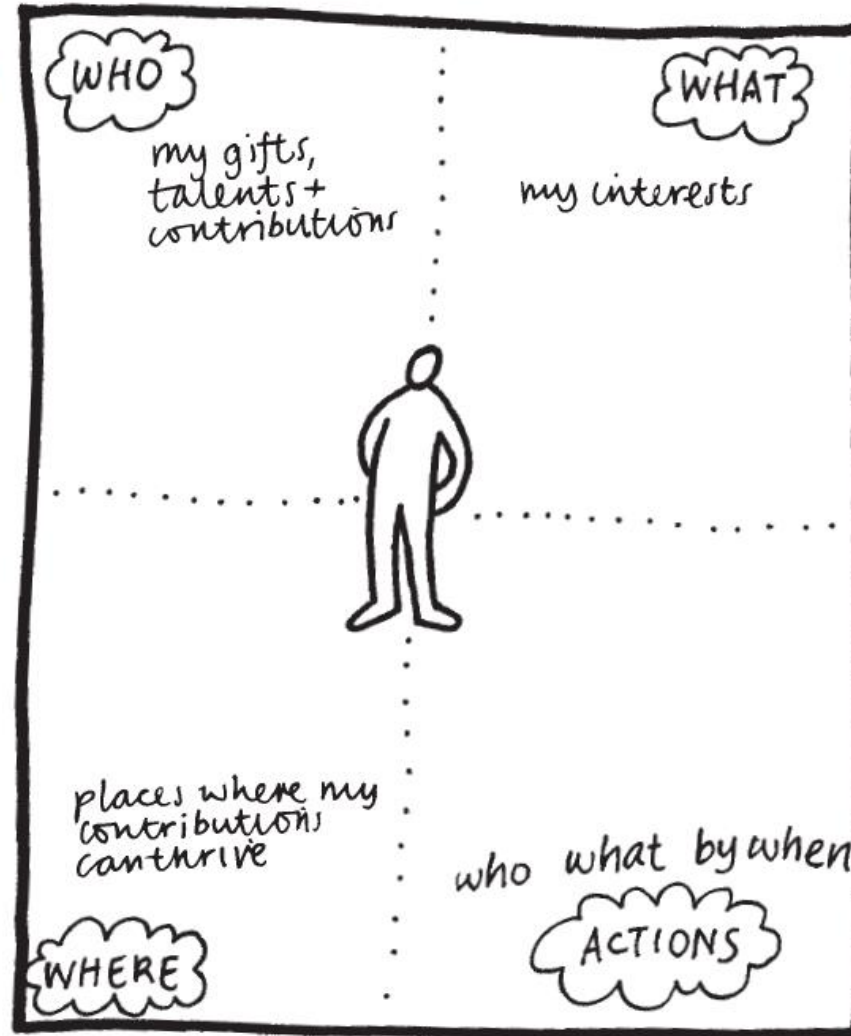 WHO
my gifts,
talents +
contributions
WHAT
my interests
places where my
contributions
can thrive
WHERE
who what by when
ACTIONS